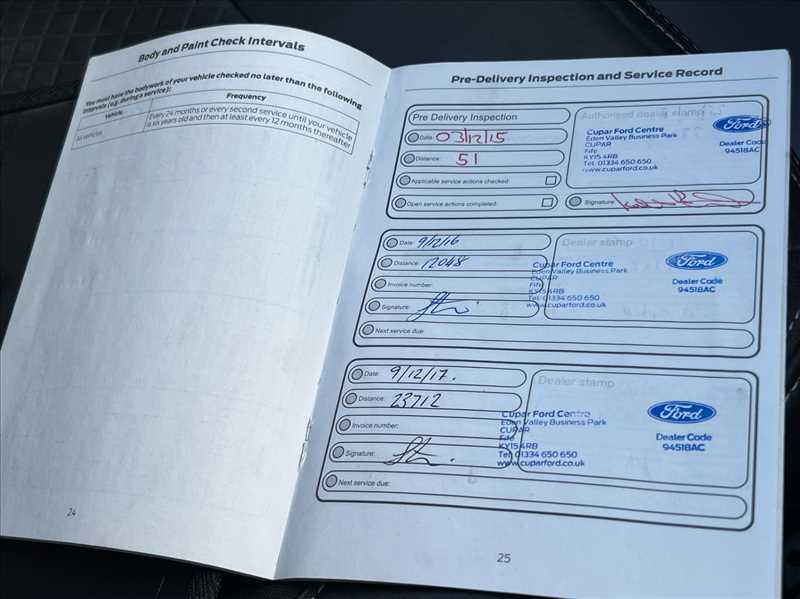 Body and Paint Check Intervals
You must have the bodywork of your vehicle checked no later than the following
intervals (e.g. during a service):
Vehicle
Frequency
All vehicles
Every 24 months or every second service until your vehicle
is six years old and then at least every 12 months thereafter
24
Pre-Delivery Inspection and Service Record
Pre Delivery Inspection
Date: 03/12/15
Distance: 51
Applicable service actions checked
Open service actions completed:
Authorised dealer stamp
Cupar Ford Centre
Eden Valley Business Park
CUPAR
Fife
KY15 4RB
Tel: 01334 650 650
www.cuparford.co.uk
Ford
Dealer Code
94518AC
Signature:
Date: 9/12/16
Distance: 12048
Invoice number:
Signature:
Next service due:
Dealer stamp
Cupar Ford Centre
Eden Valley Business Park
CUPAR
Fife
KY15 4RB
Tel: 01334 650 650
www.cuparford.co.uk
Ford
Dealer Code
94518AC
Date: 9/12/17.
Distance: 23712
Invoice number:
Signature:
Next service due:
Dealer stamp
Cupar Ford Centre
Eden Valley Business Park
CUPAR
Fife
KY15 4RB
Tel: 01334 650 650
www.cuparford.co.uk
Ford
Dealer Code
94518AC
25